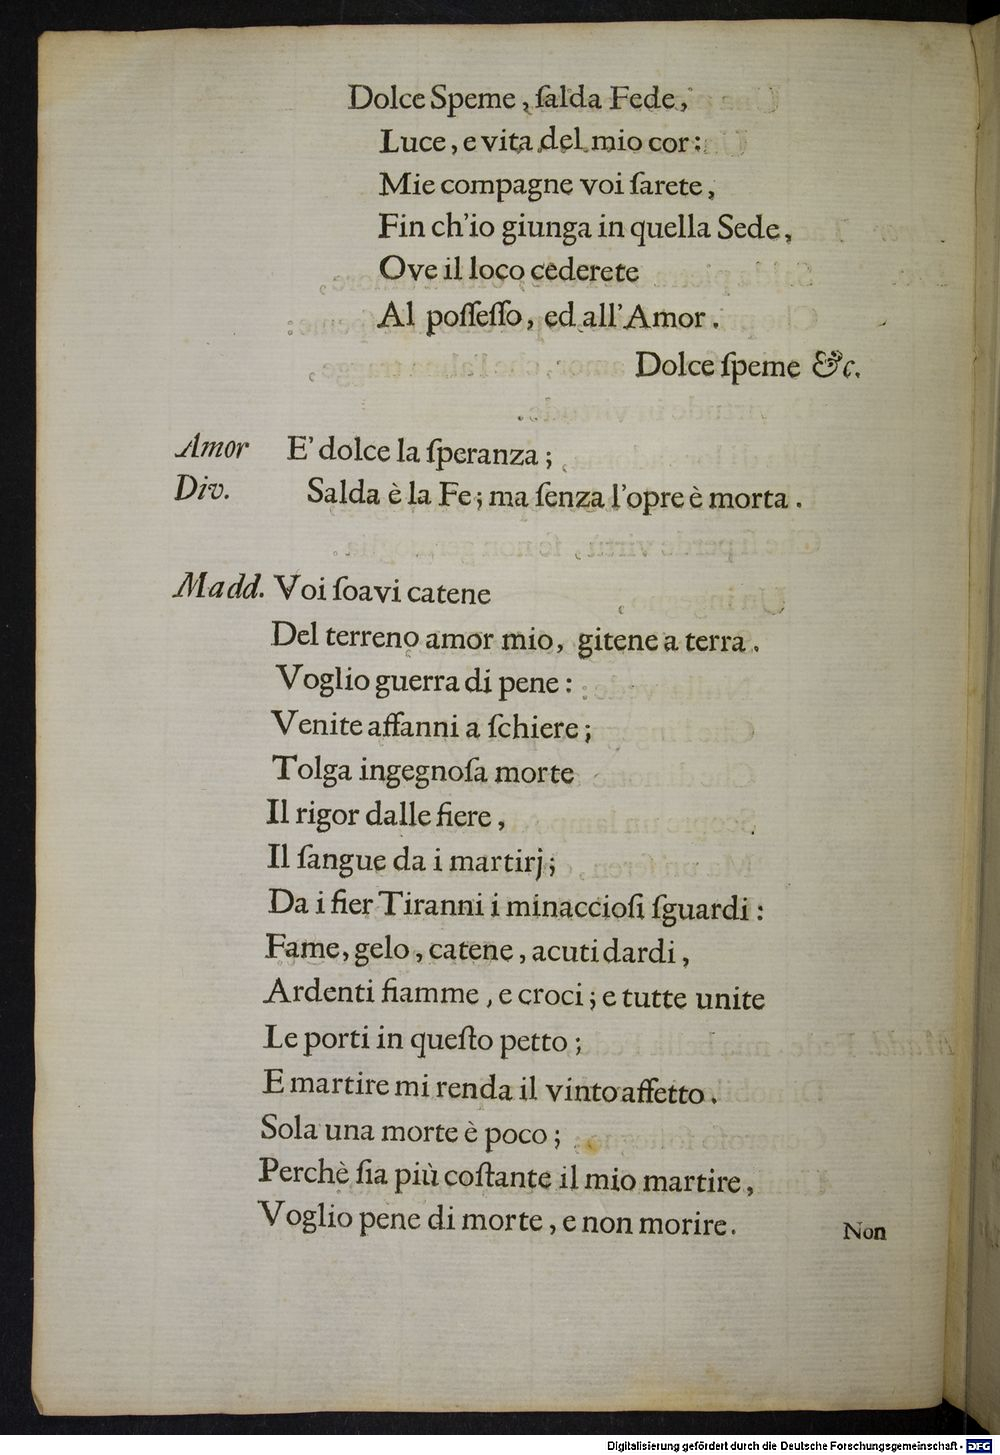 Dolce Speme, ſalda Fede,
Luce, e vita del mio cor:
Mie compagne voi ſarete,
Fin ch'io giunga in quella Sede,
Ove il loco cederete
Al poſſeſſo, ed all'Amor.
Dolce ſpeme &c.
Amor E' dolce la ſperanza;
Div. Salda è la Fe; ma ſenza l'opre è morta.
Madd. Voi ſoavi catene
Del terreno amor mio, gitene a terra.
Voglio guerra di pene:
Venite affanni a ſchiere;
Tolga ingegnoſa morte
Il rigor dalle fiere,
Il ſangue da i martirj;
Da i fier Tiranni i minaccioſi ſguardi:
Fame, gelo, catene, acuti dardi,
Ardenti fiamme, e croci; e tutte unite
Le porti in queſto petto;
E martire mi renda il vinto affetto.
Sola una morte è poco;
Perchè ſia più coſtante il mio martire,
Voglio pene di morte, e non morire.
Non
Digitalisierung gefördert durch die Deutsche Forschungsgemeinschaft - DFG